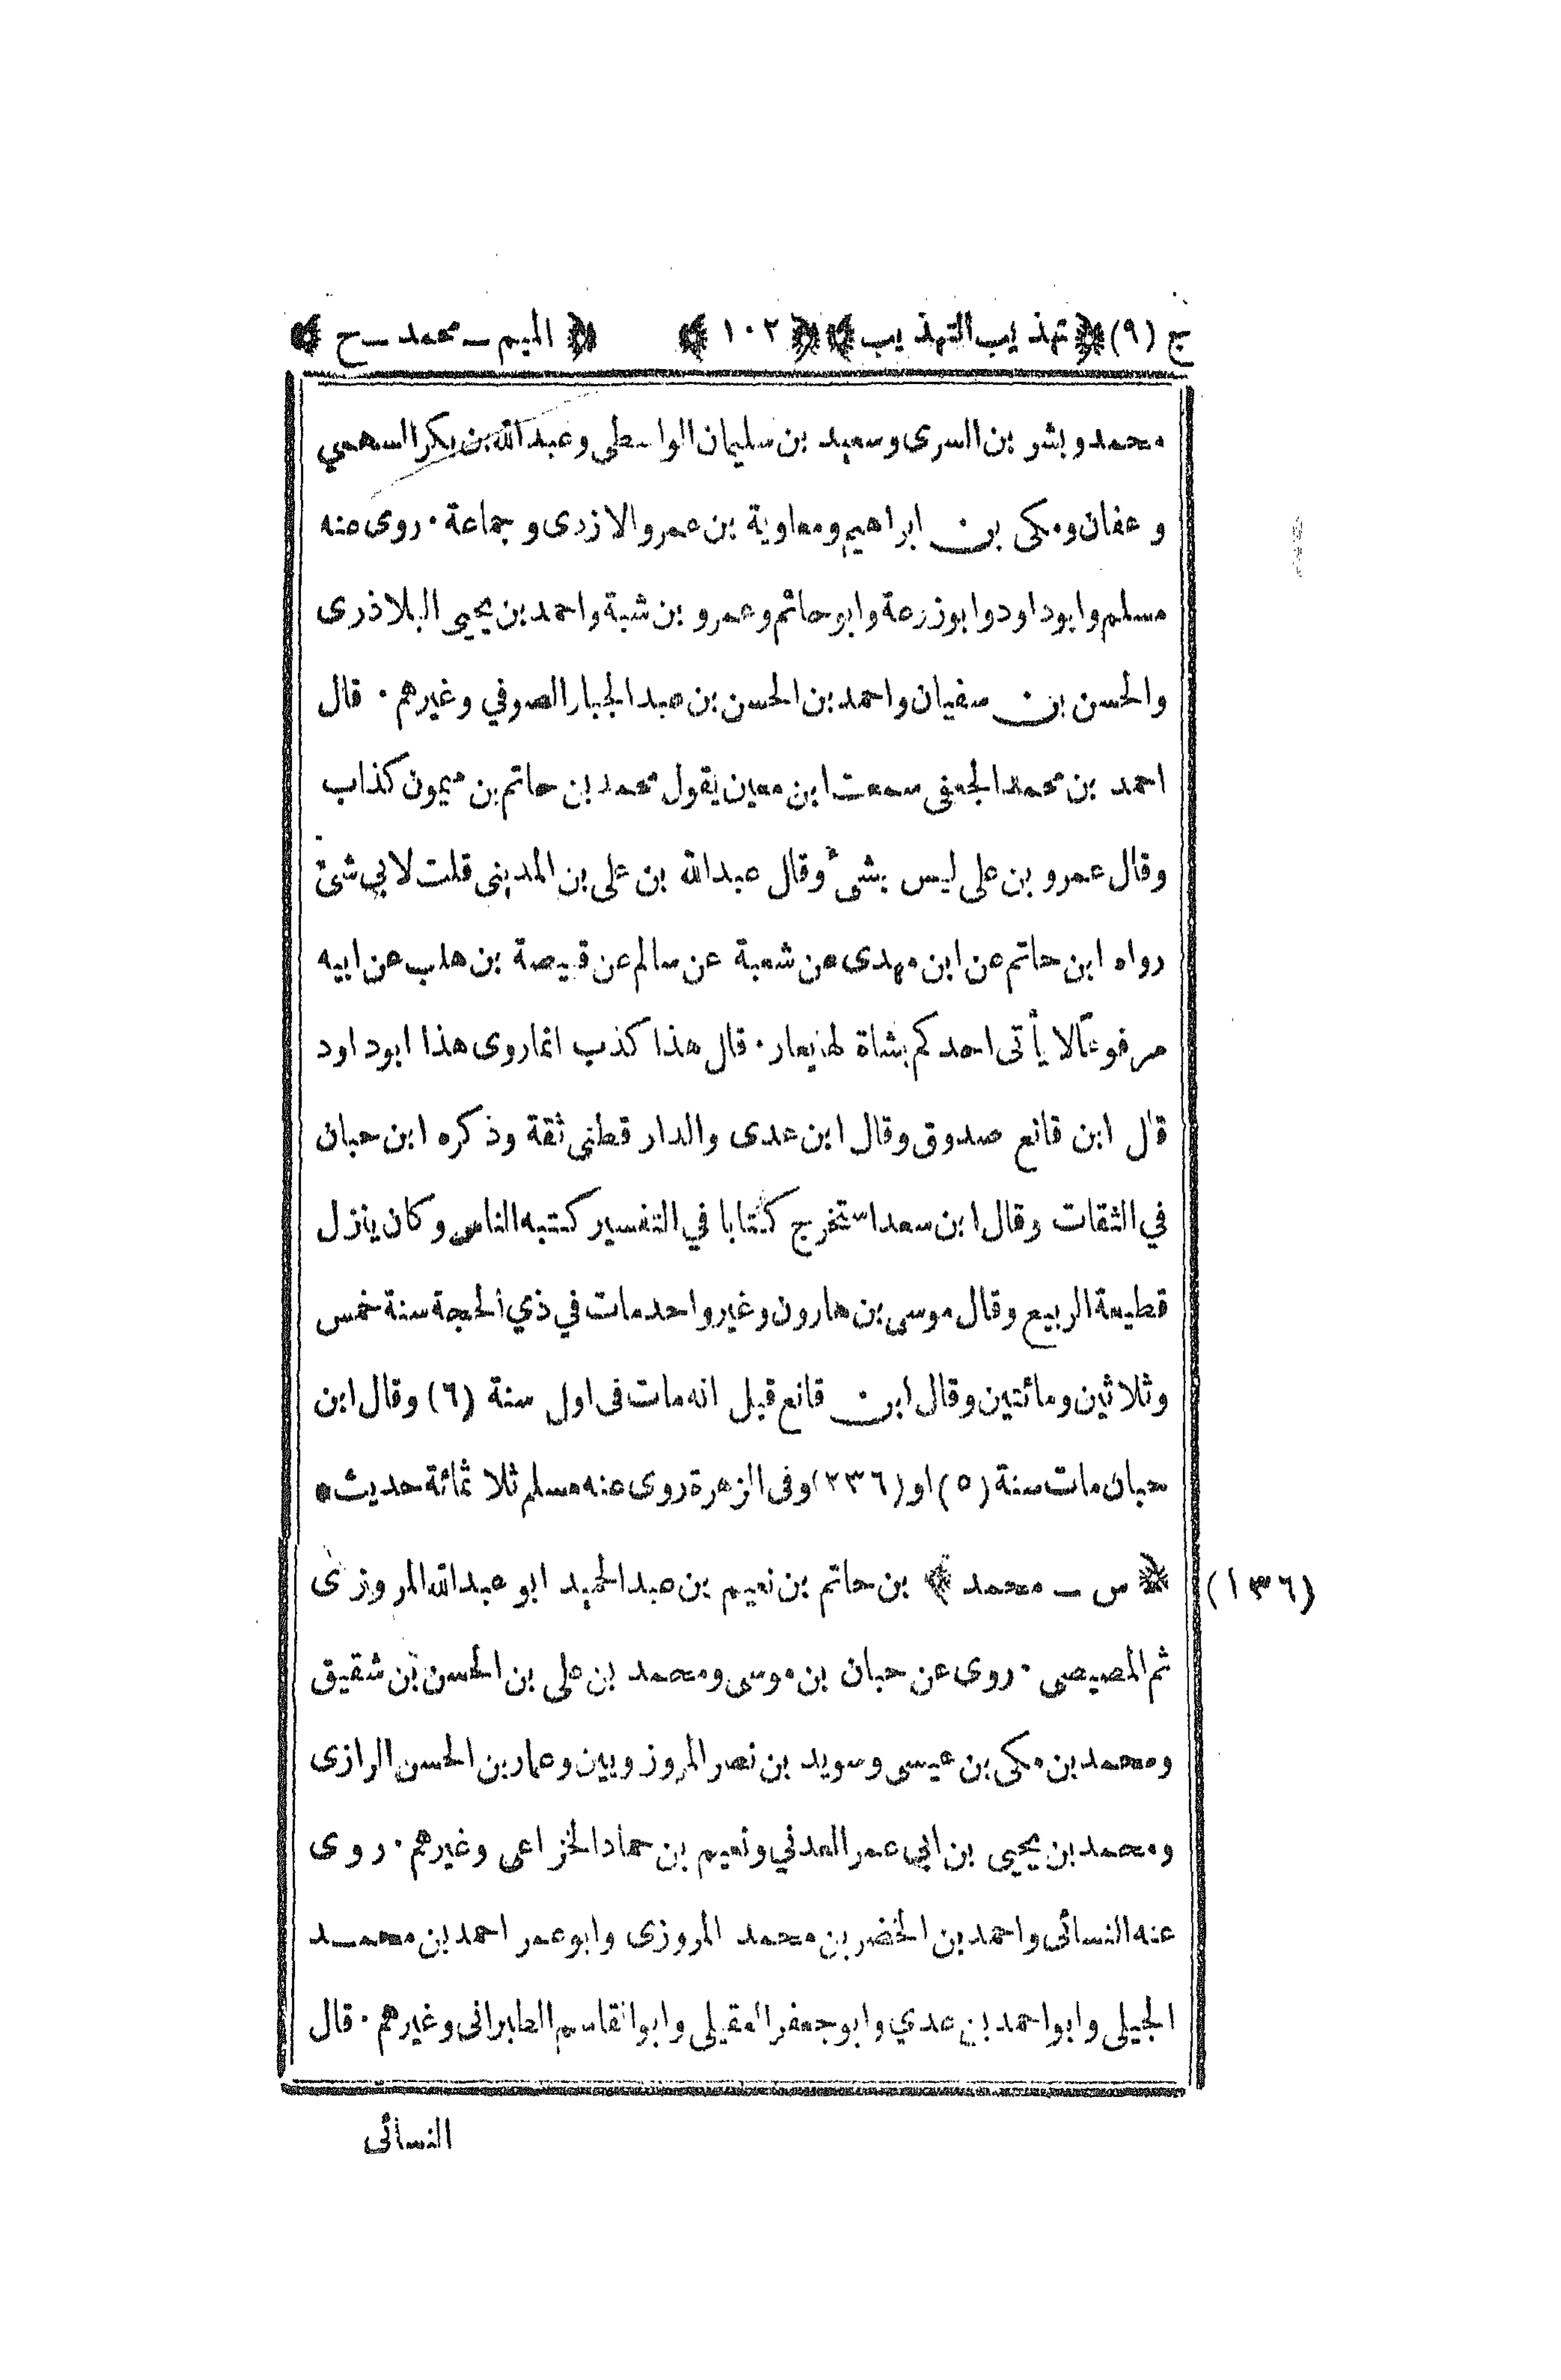 ج (٩) ﴿ تهذيب التهذيب ﴾ ﴿ ١٠٢ ﴾ ﴿ الميم ــ محمد ــ ح ﴾
محمد وبشر بن السرى وسعيد بن سليمان الواسطى وعبدالله بن بكر السهمي
وعفان ومكى بن ابراهيم ومعاوية بن عمرو الازدى وجماعة ٠ روى عنه
مسلم وابوداود وابوزرعة وابوحاتم وعمرو بن شبة واحمد بن يحيى البلاذرى
والحسن بن سفيان واحمد بن الحسن بن عبدالجبار الصوفي وغيرهم ٠ قال
احمد بن محمد الجعفى سمعت ابن معين يقول محمد بن حاتم بن ميمون كذاب
وقال عمرو بن على ليس بشئ وقال عبدالله بن على بن المدينى قلت لابي شئ
رواه ابن حاتم عن ابن مهدى عن شعبة عن سالم عن قبيصة بن هلب عن ابيه
مرفوعاً لا يأتى احدكم بشاة لها يعار ٠ قال هذا كذب انما روى هذا ابوداود
قال ابن قانع صدوق وقال ابن عدى والدار قطنى ثقة وذكره ابن حبان
في الثقات وقال ابن سعد استخرج كتابا في التفسير كتبه الناس وكان ينزل
قطيعة الربيع وقال موسى بن هارون وغير واحد مات في ذي الحجة سنة خمس
وثلاثين ومائتين وقال ابن قانع قيل انه مات فى اول سنة (٦) وقال ابن
حبان مات سنة (٥) او (٢٣٦) وفى الزهرة روى عنه مسلم ثلاثمائة حديث •
(١٣٦) ﴿ س ــ محمد ﴾ بن حاتم بن نعيم بن عبدالحميد ابو عبدالله المروزى
ثم المصيصى ٠ روى عن حبان بن موسى ومحمد بن على بن الحسن بن شقيق
ومحمد بن مكى بن عيسى وسويد بن نصر المروزويين وعمار بن الحسن الرازى
ومحمد بن يحيى بن ابي عمر العدني ونعيم بن حماد الخزاعى وغيرهم ٠ روى
عنه النسائى واحمد بن الخضر بن محمد المروزى وابو عمر احمد بن محمــد
الجيلى وابواحمد بن عدي وابوجعفر العقيلى وابوالقاسم الطبرانى وغيرهم ٠ قال
النسائى